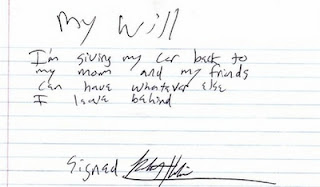 My Will
I'm giving my car back to
my mom and my friends
can have whatever else
I leave behind
Signed